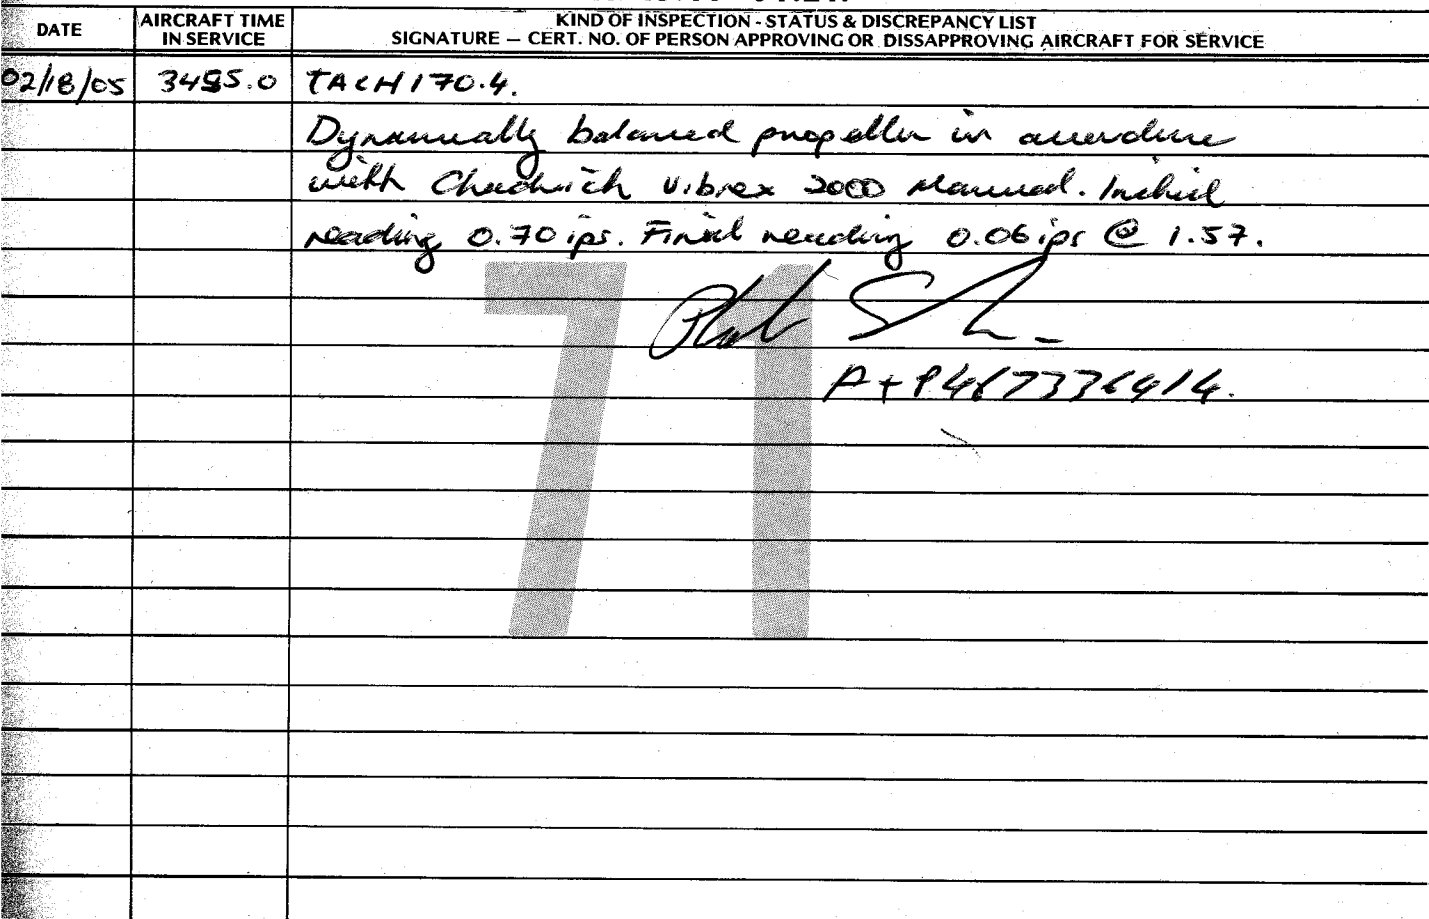 DATE
AIRCRAFT TIME
IN SERVICE
KIND OF INSPECTION - STATUS & DISCREPANCY LIST
SIGNATURE — CERT. NO. OF PERSON APPROVING OR DISSAPPROVING AIRCRAFT FOR SERVICE
02/18/05 3495.0 TACH 170.4.
Dynamically balanced propeller in accordance
with Chadwick Vibrex 2000 Manual. Initial
reading 0.70 ips. Final reading 0.06 ips @ 1.57.
A+P
71